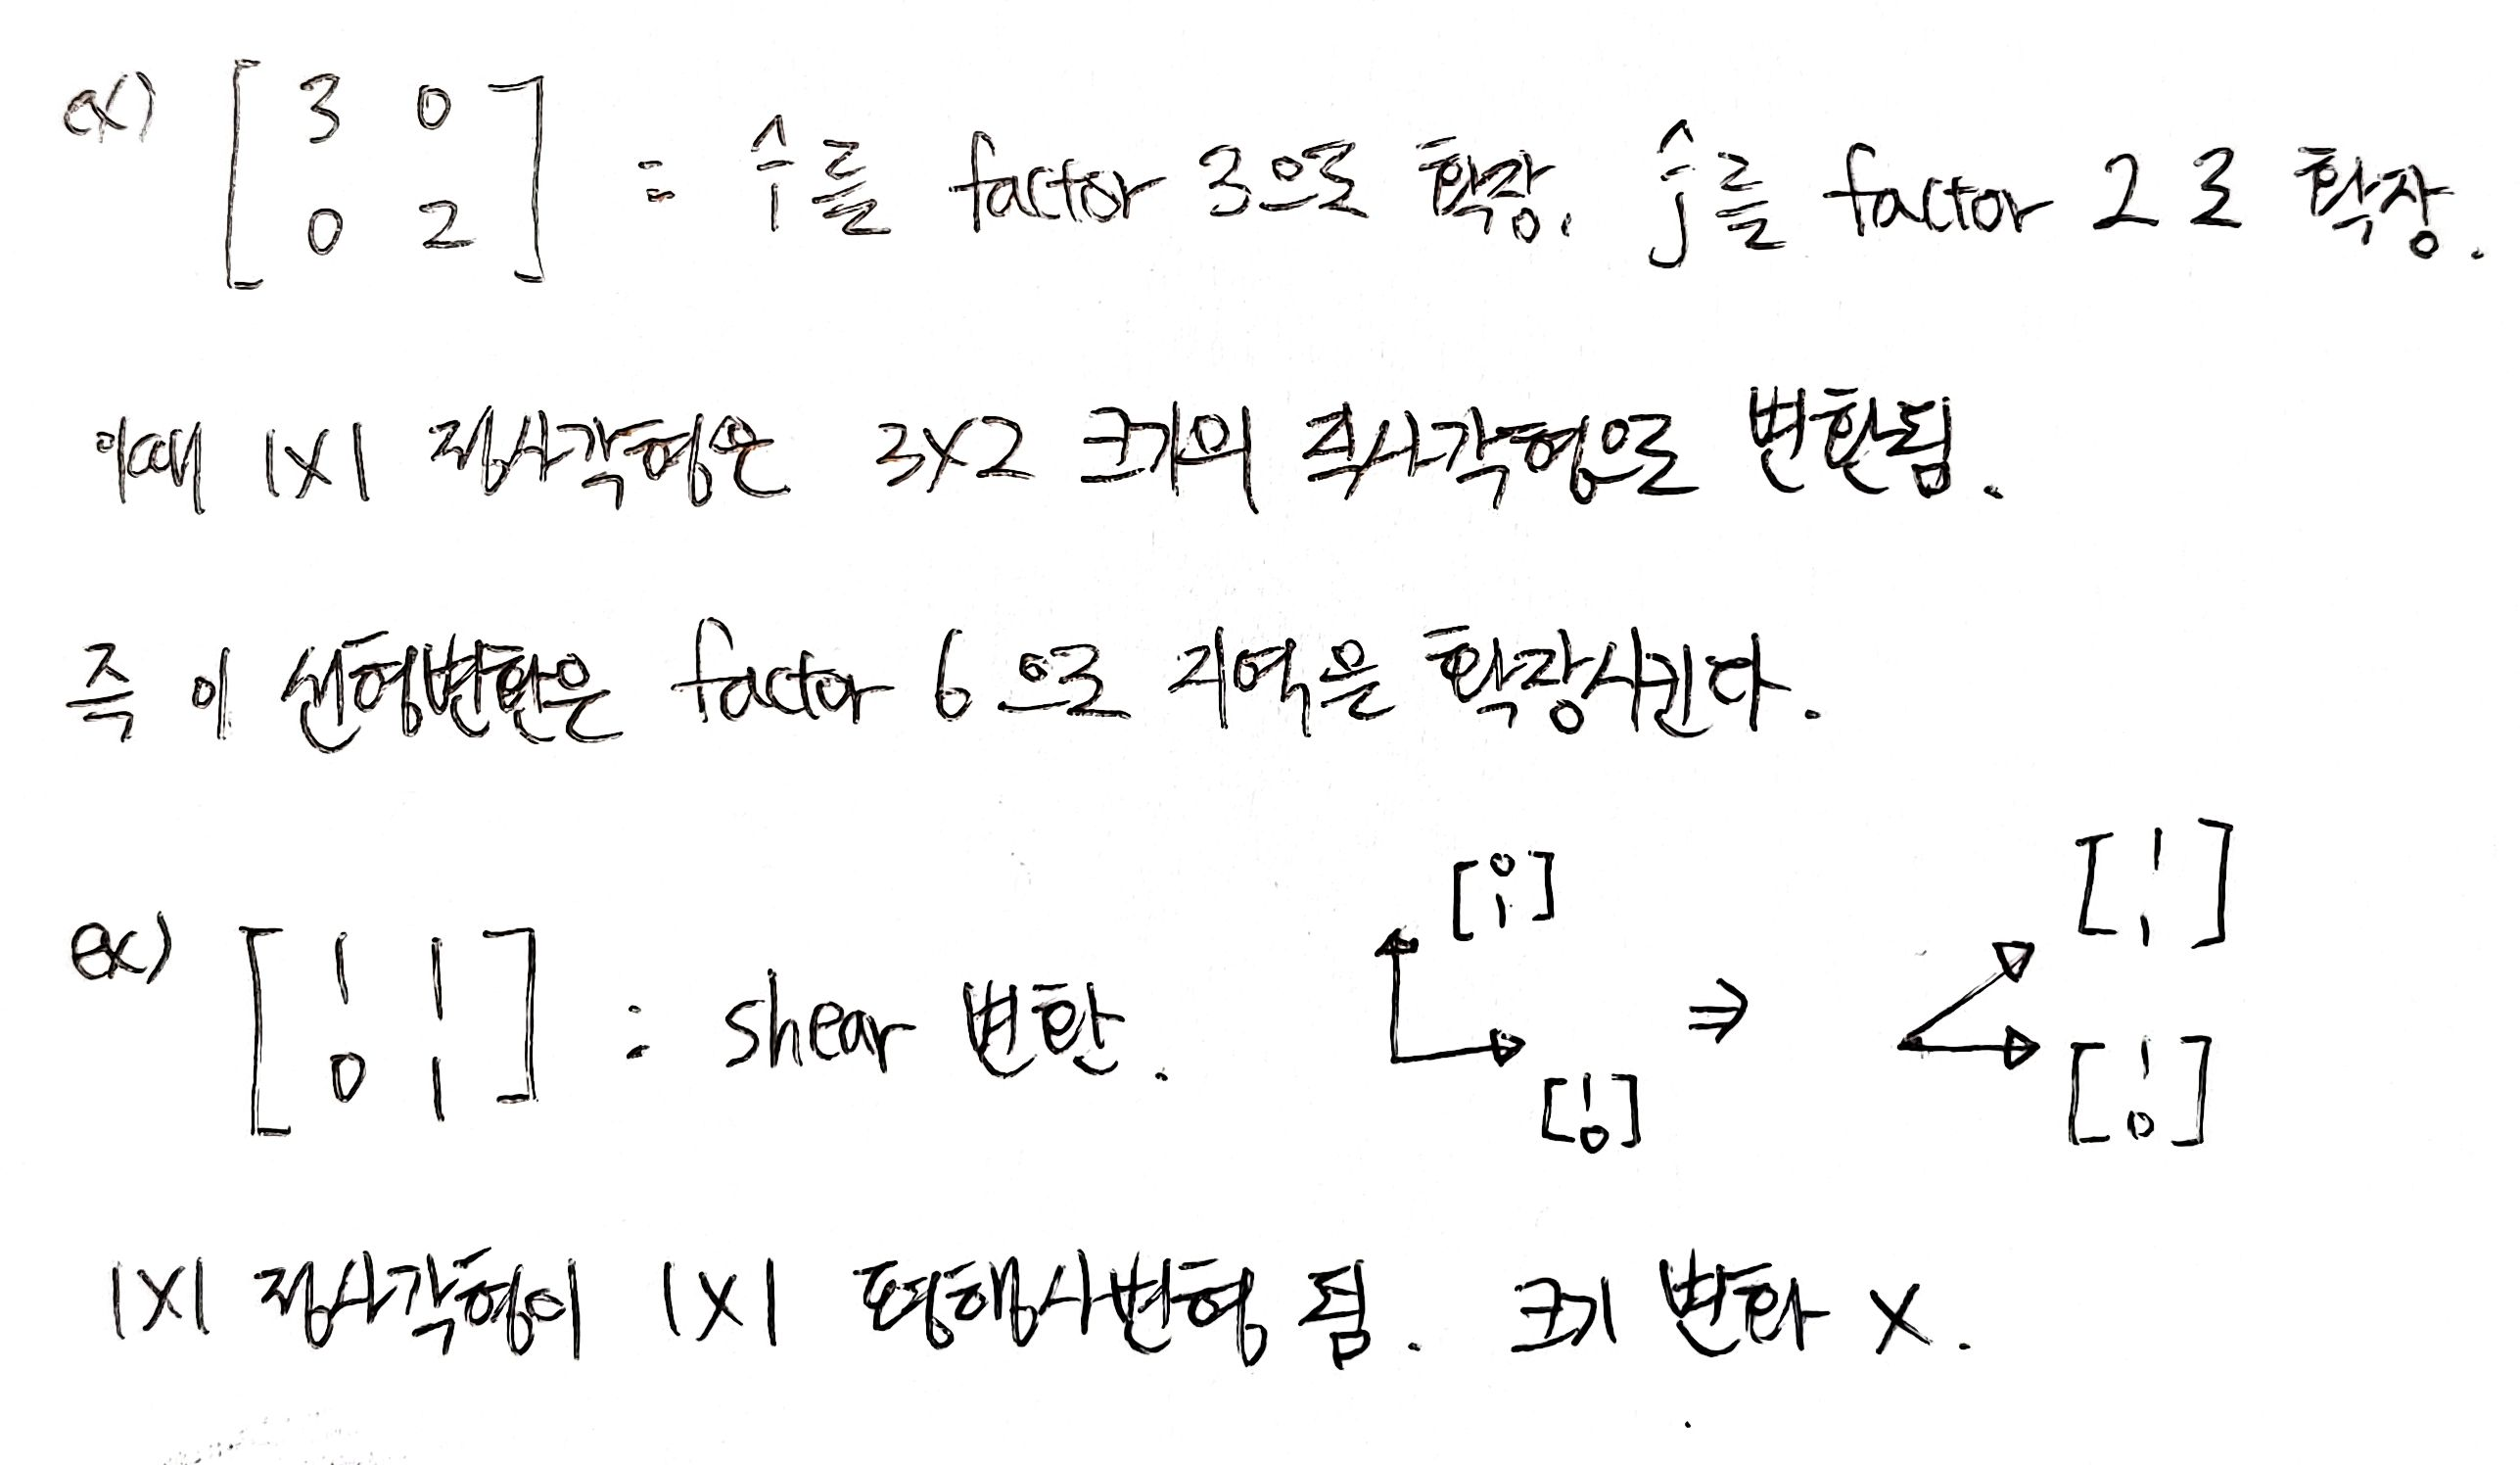 ex) [ 3 0 ; 0 2 ] : î를 factor 3으로 확장. ĵ를 factor 2로 확장.
이때 1×1 정사각형은 3×2 크기의 직사각형으로 변환됨.
즉 이 선형변환은 factor 6으로 지역을 확장시킨다.
ex) [ 1 1 ; 0 1 ] : shear 변환. [ 0 ; 1 ] [ 1 ; 0 ] ⇒ [ 1 ; 1 ] [ 1 ; 0 ]
1×1 정사각형이 1×1 평행사변형 됨. 크기 변화 X.